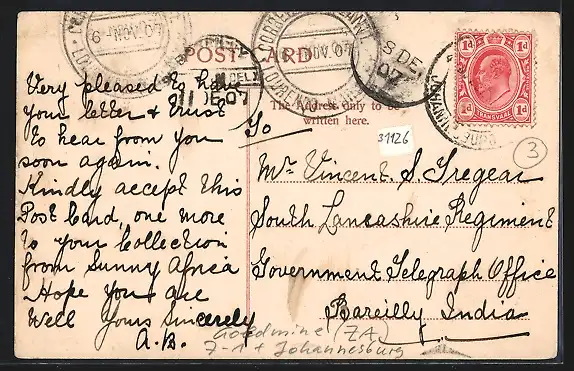 POST CARD
The Address only to be
written here.
31126
3
1d 1d
TRANSVAAL
1d 1d
Very pleased to have
your letter & trust
to hear from you
soon again.
Kindly accept this
Post Card, one more
to your Collection
from Sunny Africa
Hope you are
Well Yours sincerely
A.B.
To
Mr Vincent. S. Tregear
South Lancashire Regiment
Government Telegraph Office
Bareilly India
Goldmine (ZA)
Johannesburg